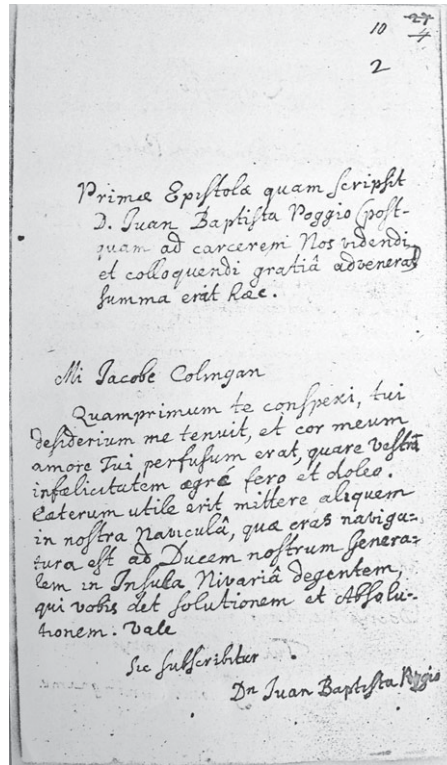 10 27
4
2
Primæ Epistolæ quam scripsit
D. Juan Baptista Poggio (post-
quam ad carcerem Nos videndi
et colloquendi gratiâ advenerat)
summa erat hæc.
Mi Jacobe Colmgan
Quamprimum te conspexi, tui
desiderium me tenuit, et cor meum
amore Tui perfusum erat, quare vestrã
infælicitatem ægré fero et doleo.
Cæterum utile erit mittere aliquem
in nostra Naviculâ, quæ cras naviga-
tura est ad Ducem nostrum Genera-
lem in Insula Nivariâ degentem,
qui vobis det solutionem et Absolu-
tionem. Vale
Sic subscribitur.
Dn Juan Baptista Poggio